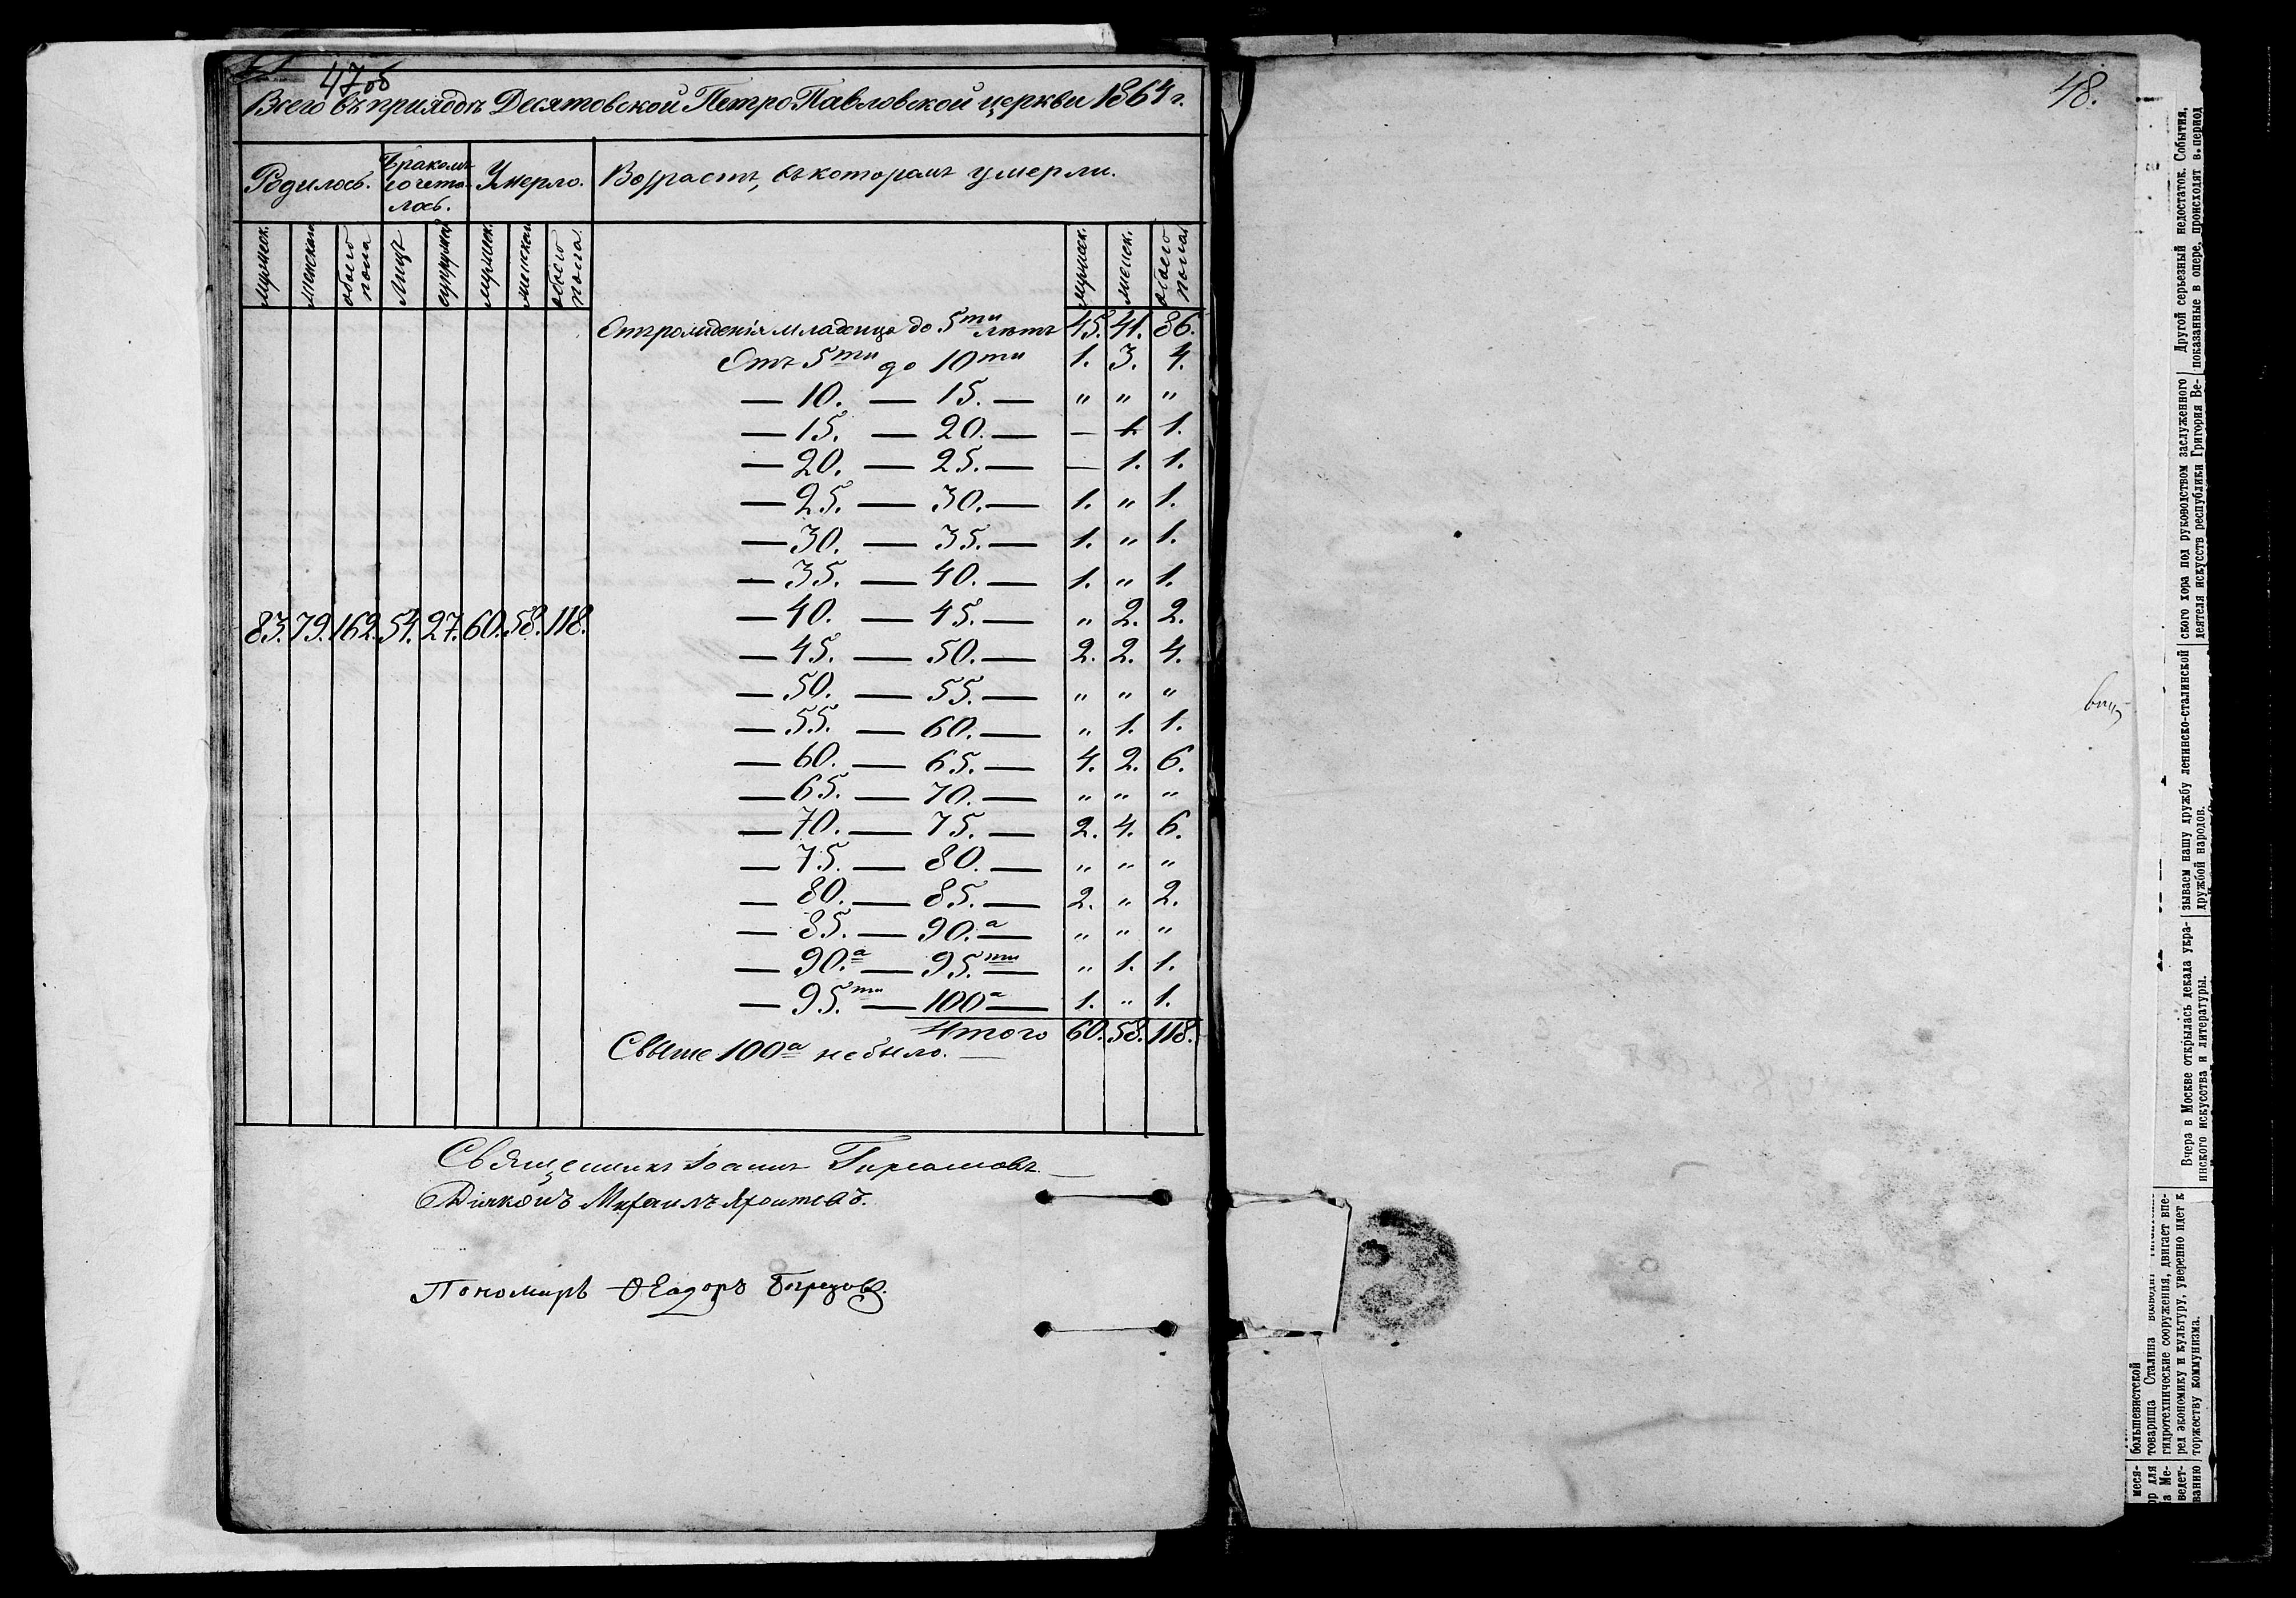 47об
Всего въ приходѣ Десятовской ПетроПавловской церкви 1864 г.
Родилось. Бракомъ сочета- лось. Умерло. Возрастъ, въ которомъ умерли.
мужеск. женскаго обоего пола Лицъ супружес. мужеск. женскаго обоего пола. мужеск. женск. обоего пола
Отъ рожденія младенца до 5ти лѣтъ 45. 41. 86.
Отъ 5ти до 10ти 1. 3. 4.
— 10. — 15. — " " "
— 15. — 20. — — 1. 1.
— 20. — 25. — — 1. 1.
— 25. — 30. — 1. " 1.
— 30. — 35. — 1. " 1.
— 35. — 40. — 1. " 1.
83. 79. 162. 54. 27. 60. 58. 118. — 40. — 45. — " 2. 2.
— 45. — 50. — 2. 2. 4.
— 50. — 55. — " " "
— 55. — 60. — " 1. 1.
— 60. — 65. — 4. 2. 6.
— 65. — 70. — " " "
— 70. — 75. — 2. 4. 6.
— 75. — 80. — " " "
— 80. — 85. — 2. " 2.
— 85. — 90.а — " " "
— 90.а — 95.ти — " 1. 1.
— 95.ти — 100а — 1. " 1.
Итого 60. 58. 118.
Свыше 100а не было. —
Священникъ Іоаннъ
Діяконъ Михаилъ
Пономарь Ѳеодоръ
48.
Другой серьезный недостаток. События,
показанные в опере, происходят в период
ского хора под руководством заслуженного
деятеля искусств республики Григория Ве-
зываем нашу дружбу ленинско-сталинской
дружбой народов.
Вчера в Москве открылась декада укра-
инского искусства и литературы.
большевистской
товарища Сталина
гидротехнические сооружения, двигает впе-
ред экономику и культуру, уверенно идет к
торжеству коммунизма.
меся-
ор для
а Ме-
ведет-
ванию